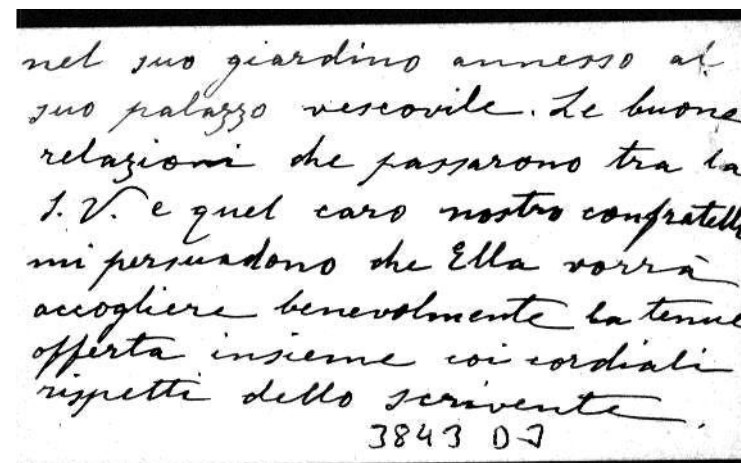 nel suo giardino annesso al
suo palazzo vescovile. Le buone
relazioni che passarono tra la
S. V. e quel caro nostro confratello
mi persuadono che Ella vorrà
accogliere benevolmente la tenue
offerta insieme coi cordiali
rispetti dello scrivente.
3843 D